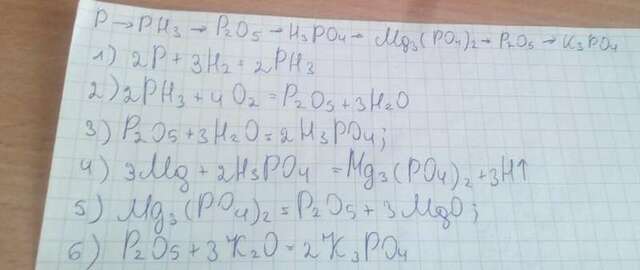 P→PH3→P2O5→H3PO4→Mg3(PO4)2→P2O5→K3PO4
1) 2P+3H2=2PH3
2) 2PH3+4O2=P2O5+3H2O
3) P2O5+3H2O=2H3PO4;
4) 3Mg+2H3PO4=Mg3(PO4)2+3H↑
5) Mg3(PO4)2=P2O5+3MgO;
6) P2O5+3K2O=2K3PO4